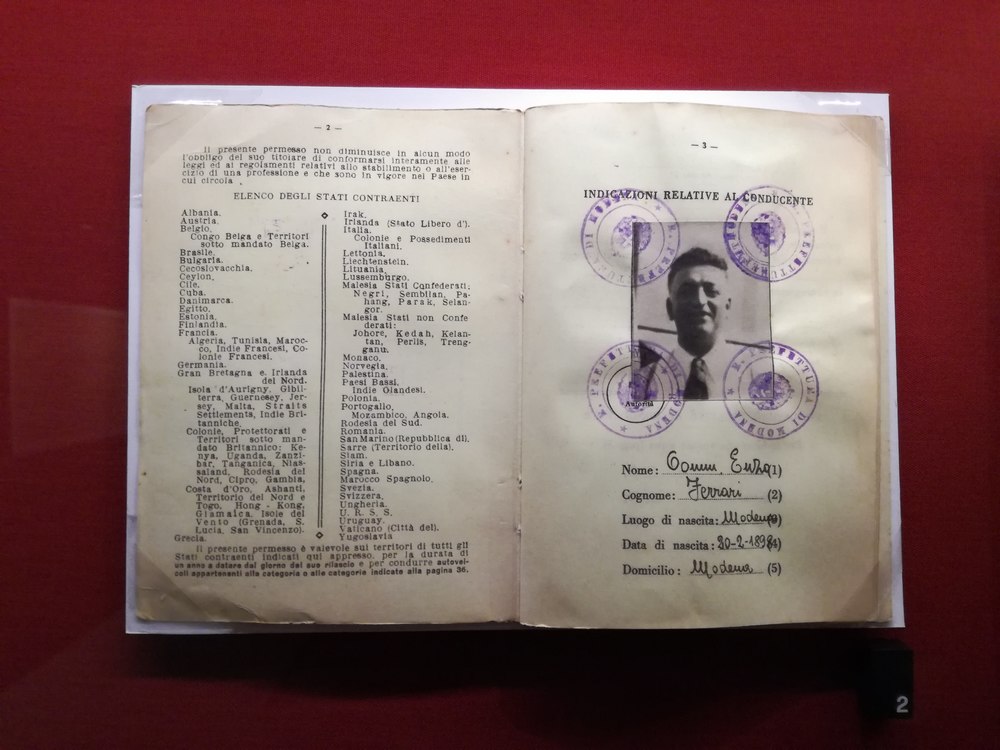 — 2 —
Il presente permesso non diminuisce in alcun modo
l'obbligo del suo titolare di conformarsi interamente alle
leggi ed ai regolamenti relativi allo stabilimento o all'eser-
cizio di una professione e che sono in vigore nel Paese in
cui circola
ELENCO DEGLI STATI CONTRAENTI
Albania.
Austria.
Belgio.
Congo Belga e Territori
sotto mandato Belga.
Brasile.
Bulgaria.
Cecoslovacchia.
Ceylon.
Cile.
Cuba.
Danimarca.
Egitto.
Estonia.
Finlandia.
Francia.
Algeria, Tunisia, Maroc-
co, Indie Francesi, Co-
lonie Francesi.
Germania.
Gran Bretagna e Irlanda
del Nord.
Isola d'Aurigny, Gibil-
terra, Guernesey, Jer-
sey, Malta, Straits
Settlements, Indie Bri-
tanniche.
Colonie, Protettorati e
Territori sotto man-
dato Britannico: Ke-
nya, Uganda, Zanzi-
bar, Tanganica, Nias-
saland, Rodesia del
Nord, Cipro, Gambia,
Costa d'Oro, Ashanti,
Territorio del Nord e
Togo, Hong-Kong,
Giamaica, Isole del
Vento (Grenada, S.
Lucia, San Vincenzo).
Grecia.
Irak.
Irlanda (Stato Libero d').
Italia.
Colonie e Possedimenti
Italiani.
Lettonia.
Liechtenstein.
Lituania.
Lussemburgo.
Malesia Stati Confederati:
Negri, Sembilan, Pa-
hang, Parak, Selan-
gor.
Malesia Stati non Confe
derati:
Johore, Kedah, Kelan-
tan, Perlis, Treng-
ganu.
Monaco.
Norvegia.
Palestina.
Paesi Bassi.
Indie Olandesi.
Polonia.
Portogallo.
Mozambico, Angola.
Rodesia del Sud.
Romania.
San Marino (Repubblica di).
Sarre (Territorio della).
Siam.
Siria e Libano.
Spagna.
Marocco Spagnolo.
Svezia.
Svizzera.
Ungheria.
U. R. S. S.
Uruguay.
Vaticano (Città del).
Yugoslavia
Il presente permesso è valevole sui territori di tutti gli
Stati contraenti indicati qui appresso, per la durata di
un anno a datare dal giorno del suo rilascio e per condurre autovei-
coli appartenenti alla categoria o alle categorie indicate alla pagina 36.
— 3 —
INDICAZIONI RELATIVE AL CONDUCENTE
R. PREFETTURA DI MODENA
R. PREFETTURA DI MODENA
R. PREFETTURA DI MODENA
R. PREFETTURA DI MODENA
Autorità
Nome: Comm. Enzo (1)
Cognome: Ferrari (2)
Luogo di nascita: Modena (3)
Data di nascita: 20-2-1898 (4)
Domicilio: Modena (5)
2